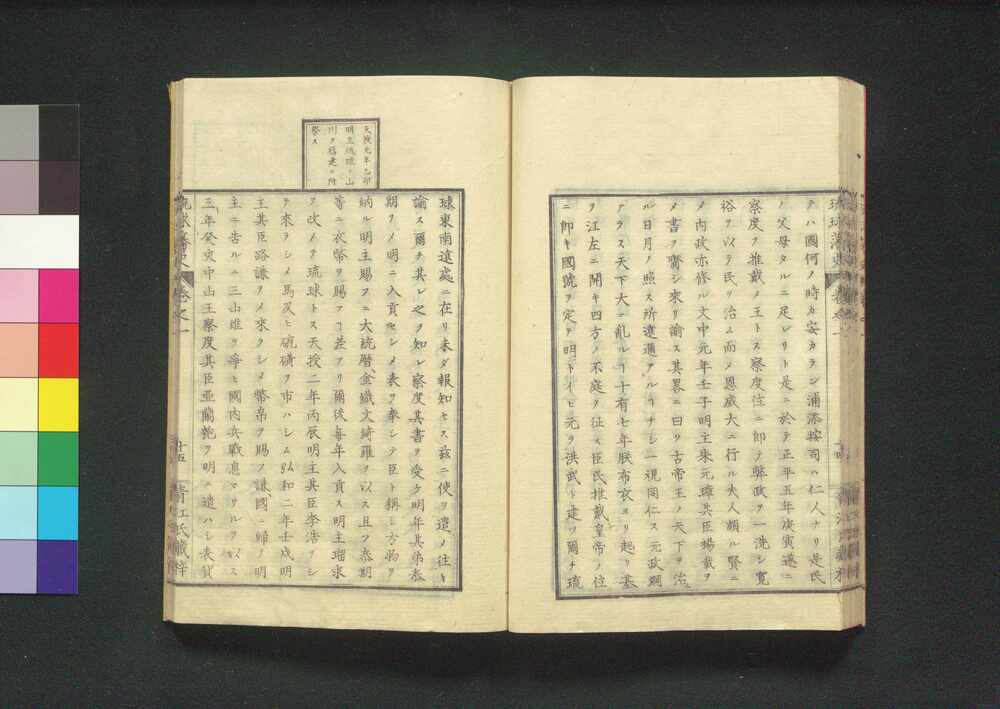 テハ國何ノ時カ安カラン浦添按司ハ仁人ナリ是民
ノ父母タルニ足レリト是ニ於テ正平五年庚寅遂ニ
察度ヲ推戴メ王トス察度位ニ即テ弊政ヲ一洗シ寛
裕ヲ以テ民ヲ治ム而メ恩威大ニ行ル夫人頗ル賢ニ
メ内政亦修ル文中元年壬子明主朱元璋其臣楊載ヲ
メ書ヲ齎シ來リ諭ス其畧ニ曰ク古帝王ノ天下ヲ治
ル日月ノ照ス所遠邇アルヿナシ一視同仁ス元政綱
アラス天下大ニ亂ルヿ十有七年朕布衣ヨリ起リ基
ヲ江左ニ開キ四方ノ不庭ヲ征ス臣民推戴皇帝ノ位
ニ即キ國號ヲ定テ明トイヒ元ヲ洪武ト建ツ爾チ琉
天授元年乙卯
明主琉球ノ山
川ヲ福建ニ附
祭ス
球東南遠處ニ在リ未ダ報知セス茲ニ使ヲ遣ノ往キ
諭ス爾チ其レ之ヲ知レ察度其書ヲ受ク明年其弟泰
期ヲメ明ニ入貢セシメ表ヲ奉シテ臣ト稱シ方物ヲ
納ル明主賜フニ大統曆金織文綺羅ヲ以ス且ツ泰期
等ニ衣幣ヲ賜フヿ差アリ爾後毎年入貢ス明主瑠求
ヲ改メテ琉球トス天授二年丙辰明主其臣李浩ヲシ
テ來ラシメ馬及ヒ硫磺ヲ市ハシム弘和二年壬戌明
主其臣路謙ヲメ來ラシメ幣帛ヲ賜フ謙國ニ歸リ明
主ニ告ルニ三山雄ヲ爭ヒ國内兵戰息マサルヲ以ス
三年癸亥中山王察度其臣亜蘭匏ヲ明ニ遣ハシ表貢
琉球藩史 巻之一 十五 青江氏蔵梓